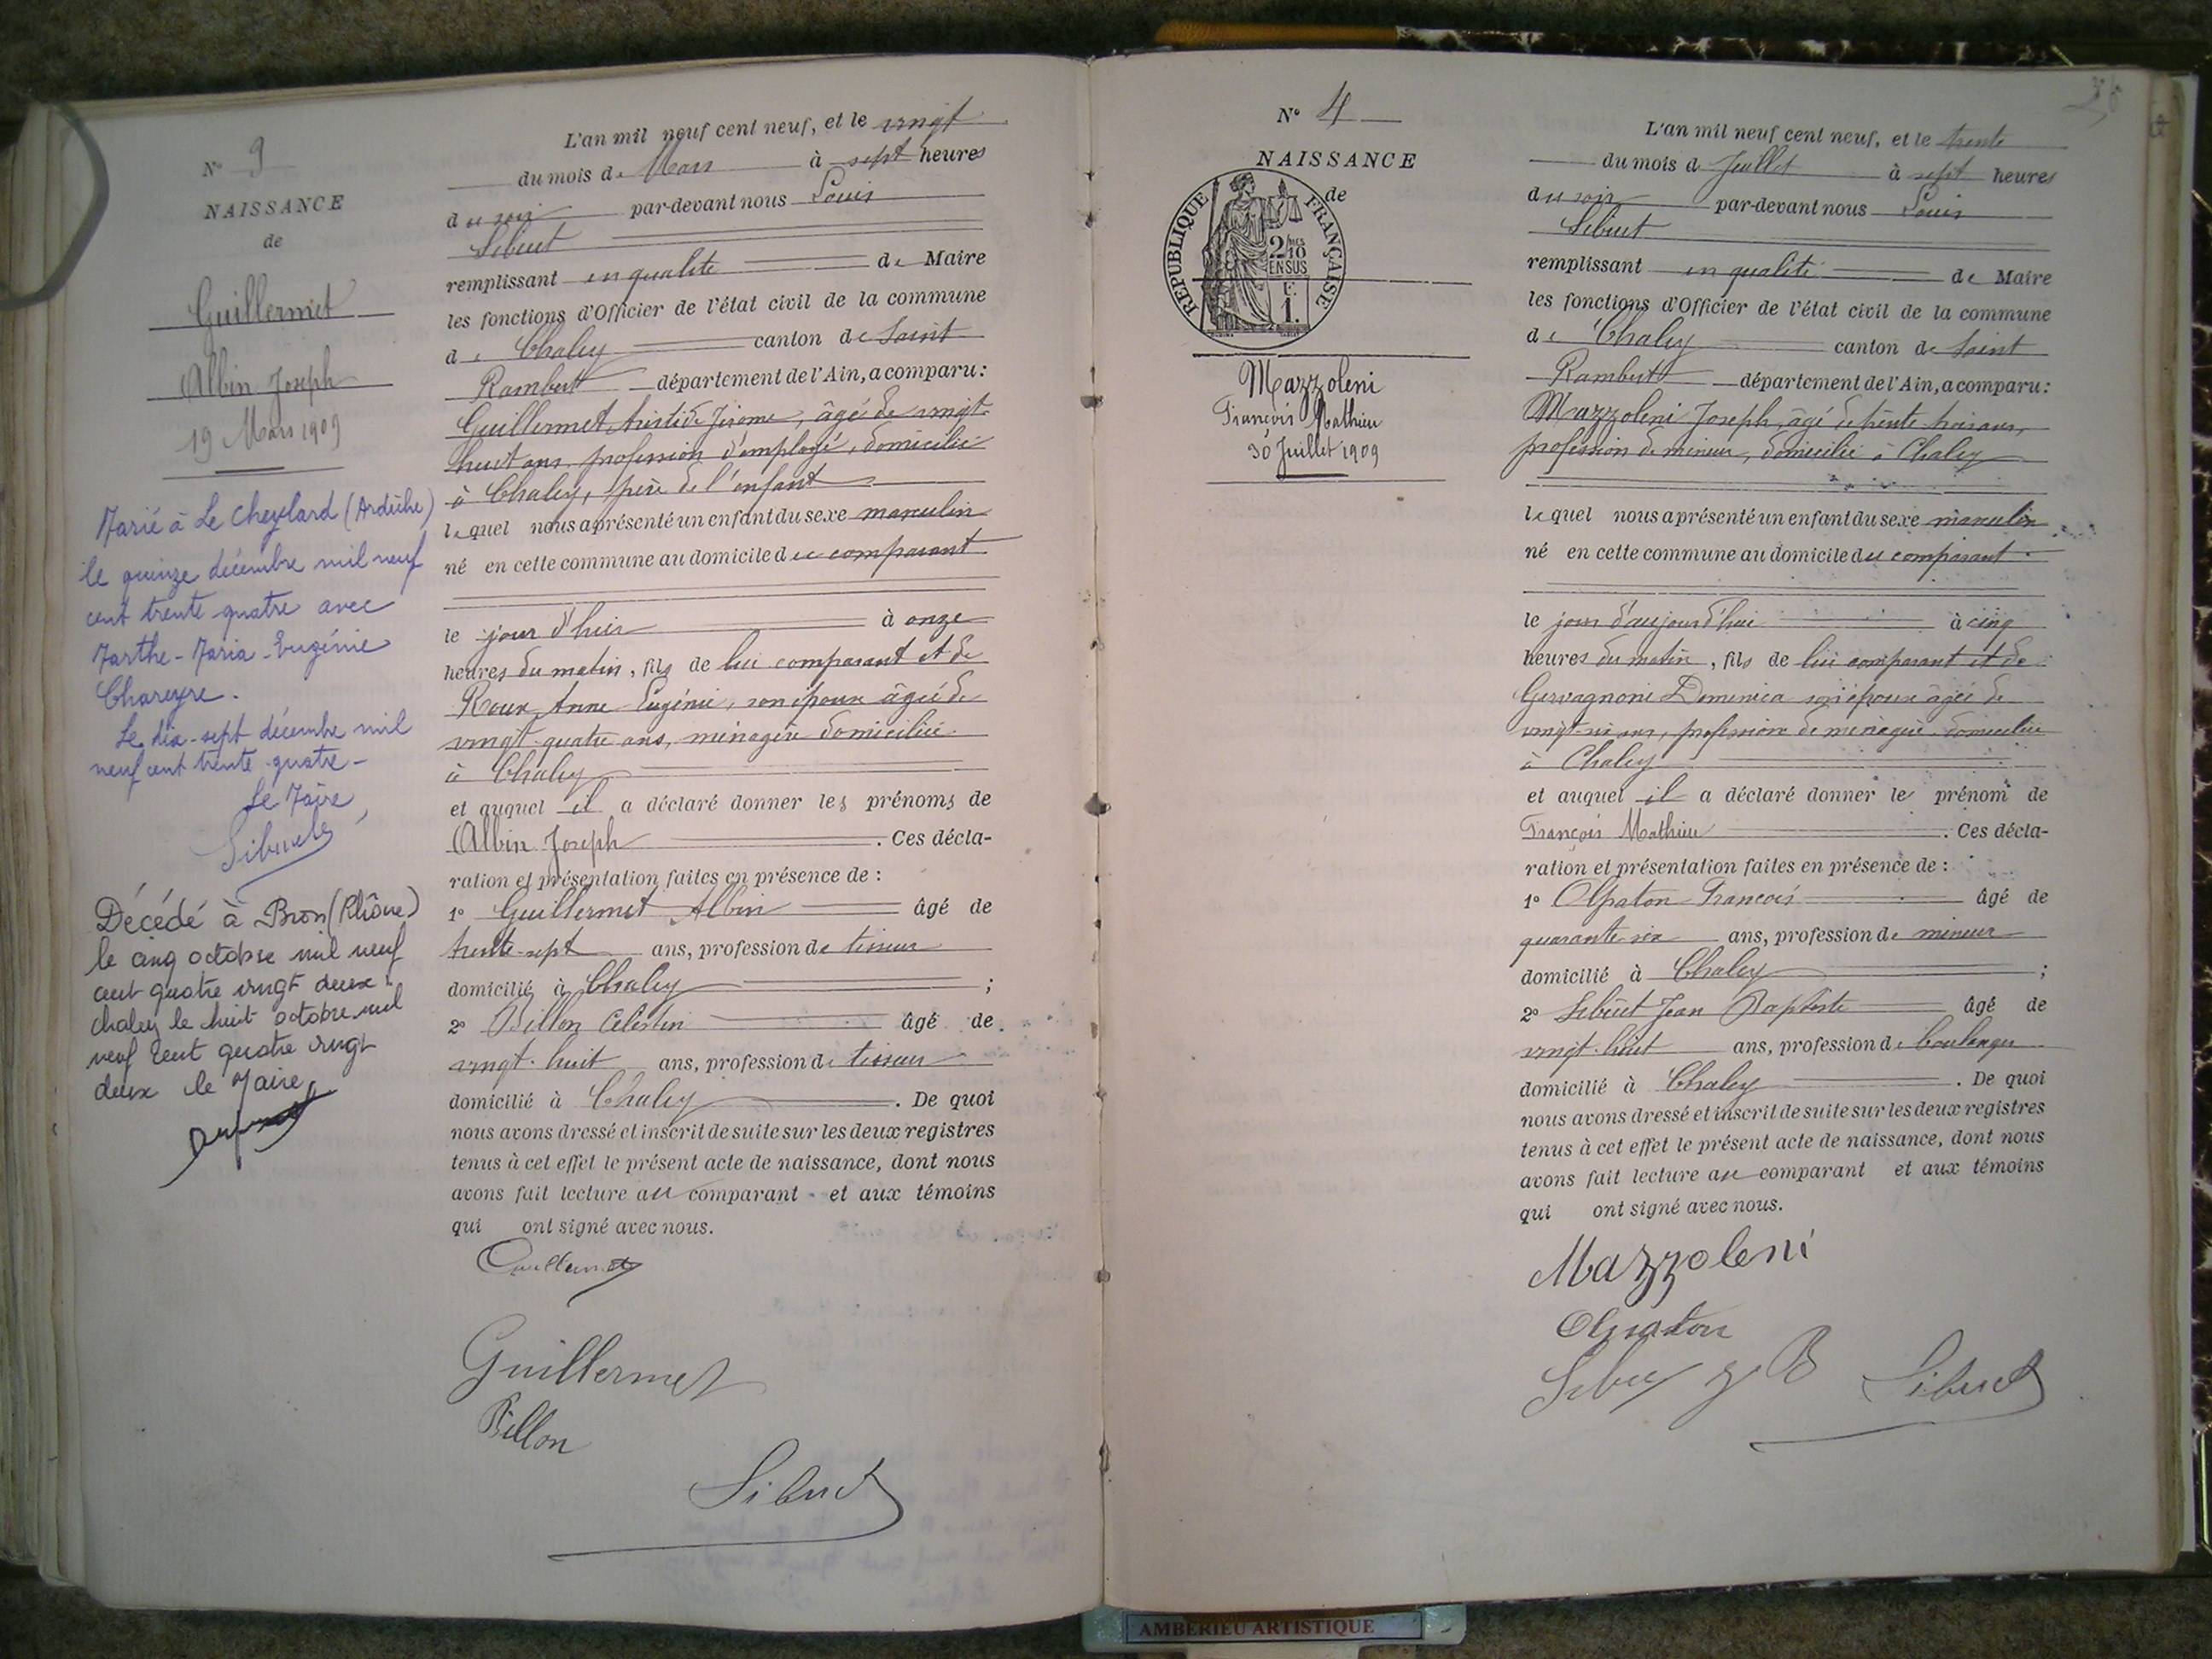 N° 9
NAISSANCE
de
Guillermet
Albin Joseph
19 Mars 1909
Marié à Le Cheylard (Ardèche)
le quinze décembre mil neuf
cent trente quatre avec
Marthe-Maria-Eugénie
Chareyre.
Le dix-sept décembre mil
neuf cent trente-quatre-
Le Maire,
Sibuet
Décédé à Bron (Rhône)
le cinq octobre mil neuf
cent quatre vingt deux.
Chaley le huit octobre mil
neuf cent quatre vingt
deux le Maire
L'an mil neuf cent neuf, et le vingt
du mois de Mars à sept heures
du soir par-devant nous Louis
Sibuet
remplissant en qualité de Maire
les fonctions d'Officier de l'état civil de la commune
de Chaley canton de Saint
Rambert département de l'Ain, a comparu :
Guillermet Aristide Jérome, âgé de vingt
huit ans, profession d'employé, domicilié
à Chaley, père de l'enfant
lequel nous a présenté un enfant du sexe masculin
né en cette commune au domicile du comparant
le jour d'hier à onze
heures du matin, fils de lui comparant et de
Roux Anne Eugénie, son épouse âgée de
vingt-quatre ans, ménagère domiciliée
à Chaley
et auquel il a déclaré donner les prénoms de
Albin Joseph. Ces décla-
ration et présentation faites en présence de :
1° Guillermet Albin âgé de
trente-sept ans, profession de tisseur
domicilié à Chaley ;
2° Billon Célestin âgé de
vingt-huit ans, profession de tisseur
domicilié à Chaley. De quoi
nous avons dressé et inscrit de suite sur les deux registres
tenus à cet effet le présent acte de naissance, dont nous
avons fait lecture au comparant et aux témoins
qui ont signé avec nous.
Guillermet
Guillermet
Billon
Sibuet
N° 4
NAISSANCE
de
RÉPUBLIQUE FRANÇAISE
2/10
EN SUS
1.
Mazzoleni
François Mathieu
30 Juillet 1909
L'an mil neuf cent neuf, et le trente
du mois d Juillet à sept heures
du soir par-devant nous Louis
Sibuet
remplissant en qualité de Maire
les fonctions d'Officier de l'état civil de la commune
de Chaley canton de Saint
Rambert département de l'Ain, a comparu :
Mazzoleni Joseph, âgé de trente trois ans,
profession de mineur, domicilié à Chaley
lequel nous a présenté un enfant du sexe masculin
né en cette commune au domicile du comparant
le jour d'aujourd'hui à cinq
heures du matin, fils de lui comparant et de
Gervagnoni Domenica son épouse âgée de
vingt-six ans, profession de ménagère domiciliée
à Chaley
et auquel il a déclaré donner le prénom de
François Mathieu. Ces décla-
ration et présentation faites en présence de :
1° Olpaton François âgé de
quarante-six ans, profession de mineur
domicilié à Chaley ;
2° Sibuet Jean Baptiste âgé de
vingt-huit ans, profession de boulanger
domicilié à Chaley. De quoi
nous avons dressé et inscrit de suite sur les deux registres
tenus à cet effet le présent acte de naissance, dont nous
avons fait lecture au comparant et aux témoins
qui ont signé avec nous.
Mazzoleni
Olpaton
Sibuet J B Sibuet
AMBERIEU ARTISTIQUE